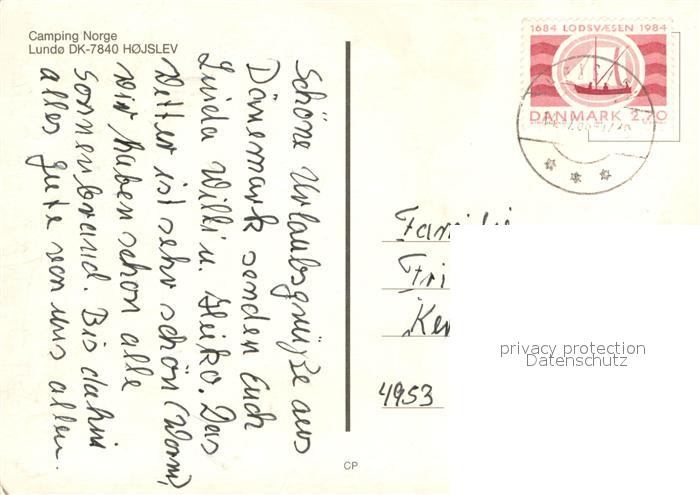 Camping Norge
Lundø DK-7840 HØJSLEV
Schöne Urlaubsgrüße aus
Dänemark senden Euch
Luida Willi u. Heiko. Das
Wetter ist sehr schön (Warm),
wir haben schon alle
Sonnenbrand. Bis dahin
alles gute von uns allen.
1684 LODSVÆSEN 1984
DANMARK 2.70
Familie
Fri
Ker
4953
privacy protection
Datenschutz
CP